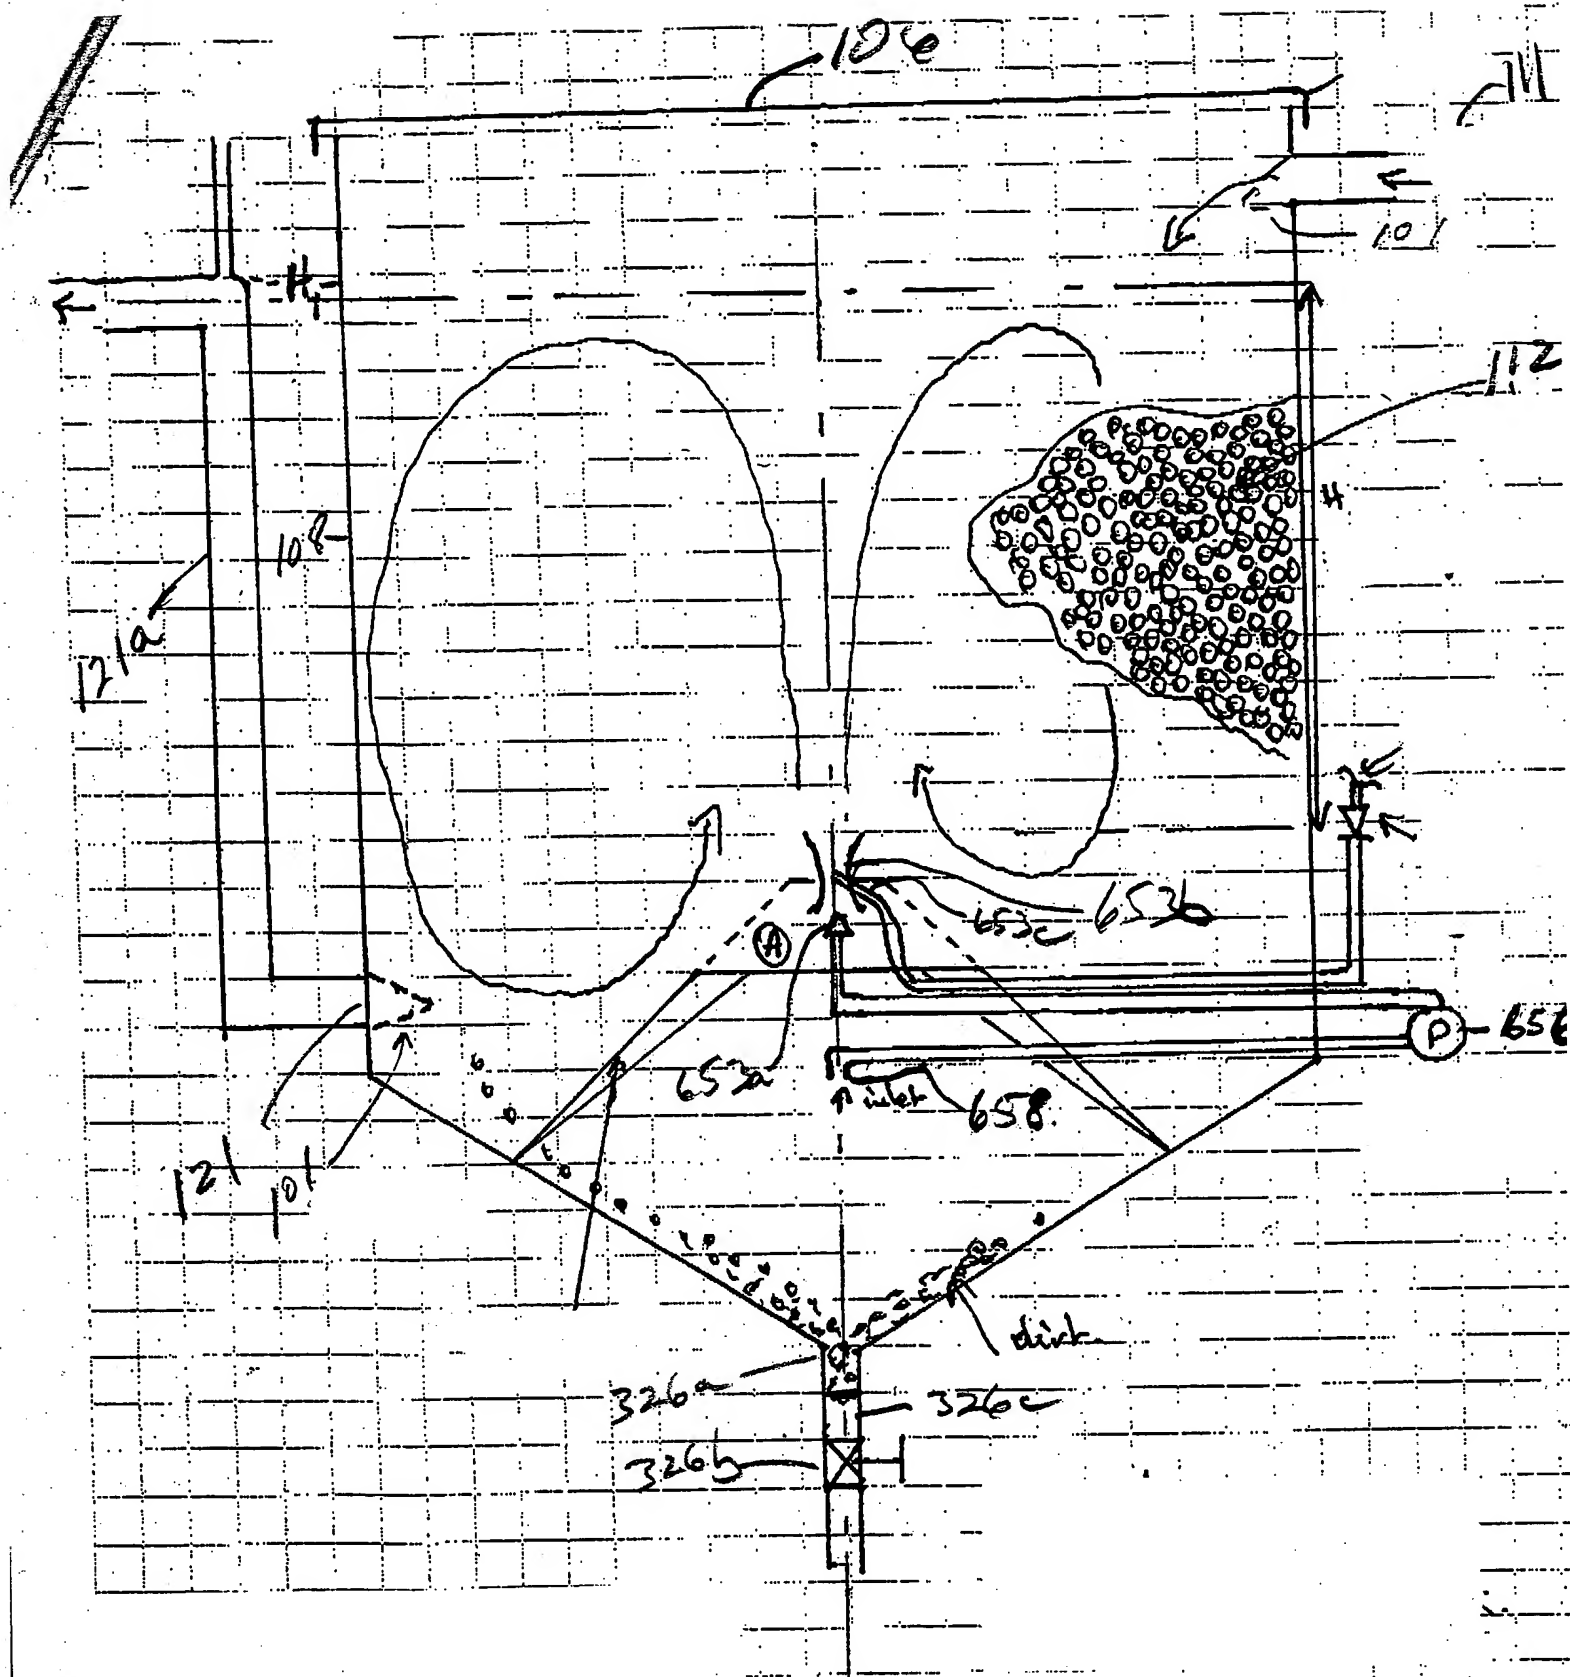 106
101
H₁
112
H
108
121a
653c
653b
A
P
653a
inlet
658.
121
101
dirt
326a
326c
326b